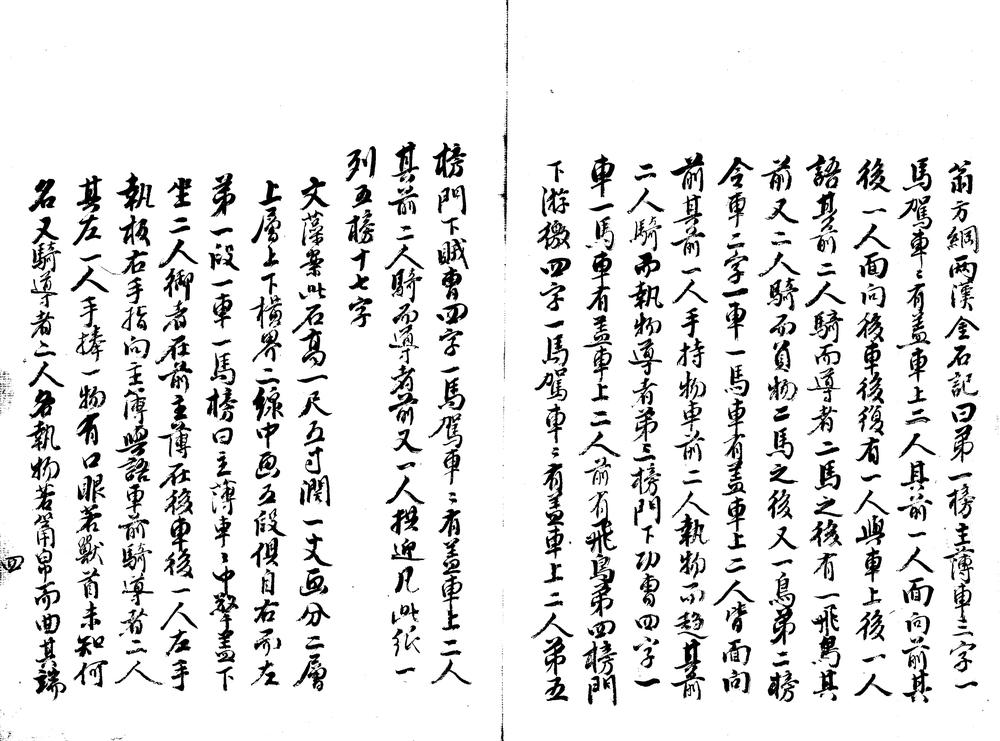 翁方綱兩漢金石記曰第一榜主薄車三字一
馬駕車〻有蓋車上二人具前一人面向前其
後一人面向後車後復有一人與車上後一人
語其前二人騎而導者二馬之後有一飛鳥其
前又二人騎而負物二馬之後又一鳥第二榜
令車二字一車一馬車有蓋車上二人皆面向
前其前一人手持物車前二人執物而趍其前
二人騎而執物導者第三榜門下功曹四字一
車一馬車有蓋車上二人前有飛鳥第四榜門
下游檄四字一馬駕車〻有蓋車上二人第五
榜門下賊曹四字一馬駕車〻有蓋車上二人
其前二人騎而導者前又一人拱迎凡此紙一
列五榜十七字
文藻案此石高一尺五寸濶一丈画分二層
上層上下橫界二線中画五段俱自右而左
第一段一車一馬榜曰主薄車〻中擎蓋下
坐二人御者在前主薄在後車後一人左手
執板右手指向主薄與語車前騎導者二人
其左一人手捧一物有口眼若獸首未知何
名又騎導者二人各執物若篇帛而曲其端
四